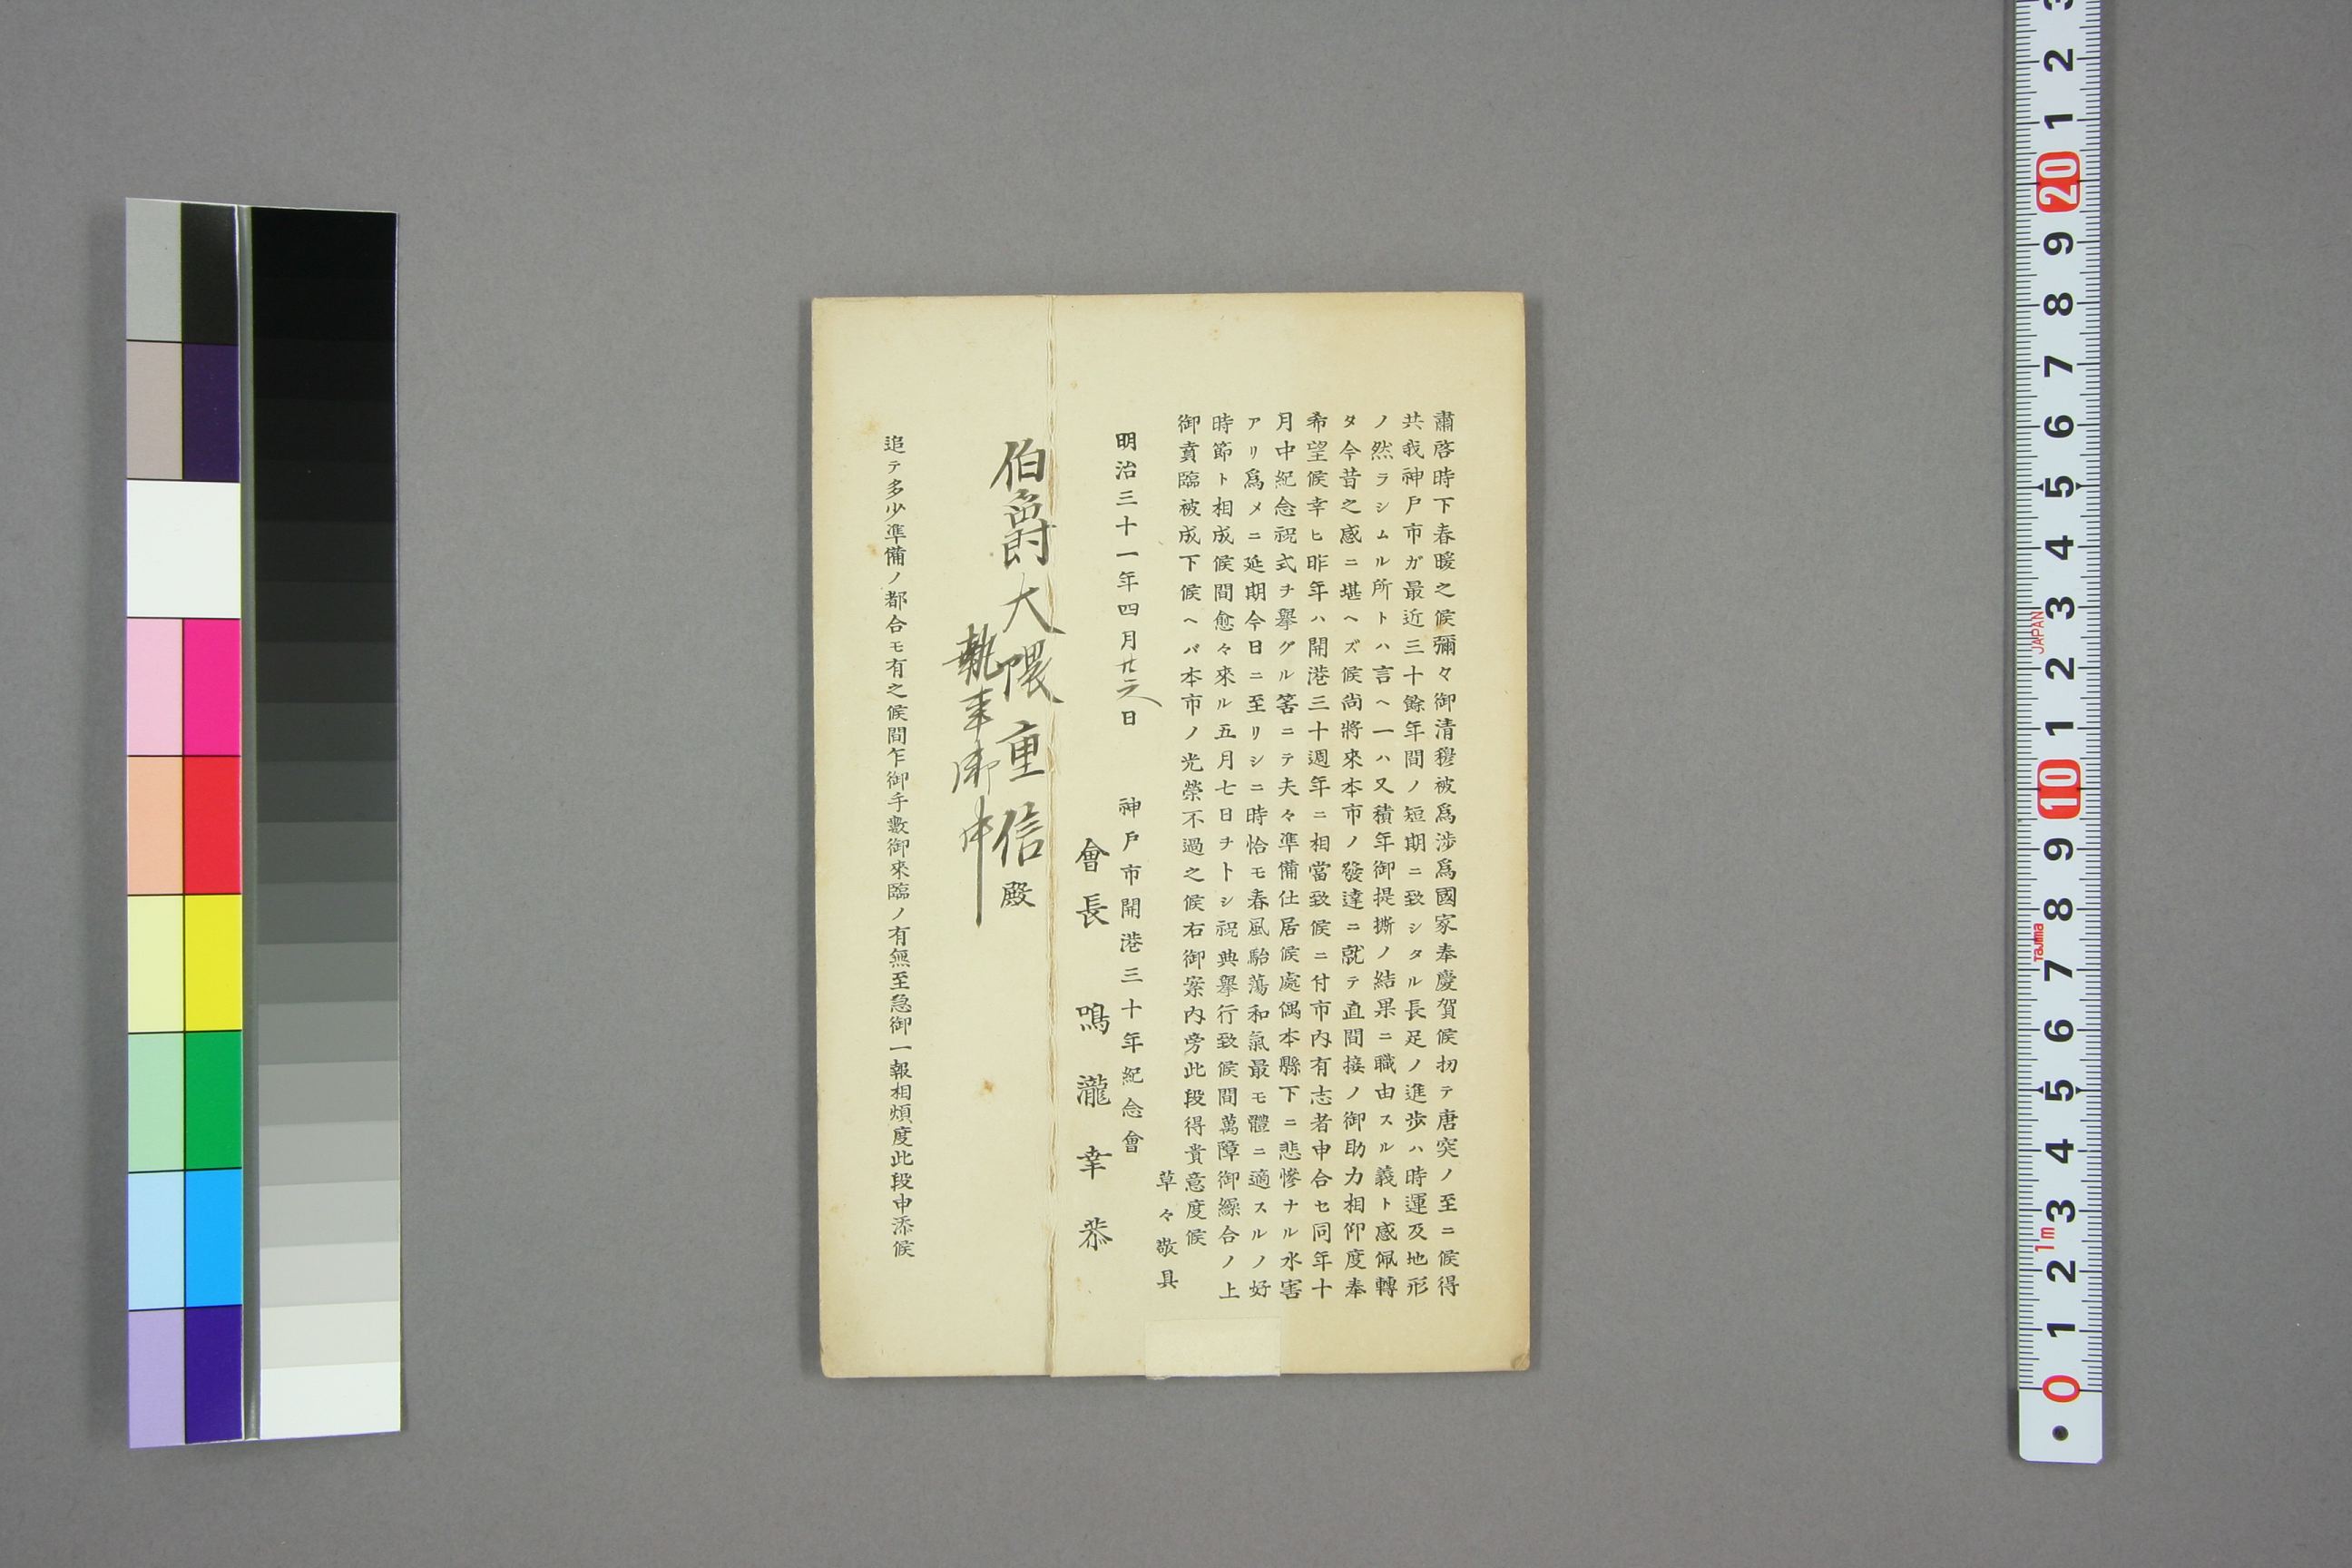 肅啓時下春暖之候彌々御清穆被爲涉爲國家奉慶賀候扨テ唐突ノ至ニ候得
共我神戸市ガ最近三十餘年間ノ短期ニ致シタル長足ノ進步ハ時運及地形
ノ然ラシムル所トハ言ヘ一ハ又積年御提撕ノ結果ニ職由スル義ト感佩轉
タ今昔之感ニ堪ヘズ候尚將來本市ノ發達ニ就テ直間接ノ御助力相仰度奉
希望候幸ヒ昨年ハ開港三十週年ニ相當致候ニ付市内有志者申合セ同年十
月中紀念祝式ヲ擧グル筈ニテ夫々準備仕居候處偶本縣下ニ悲慘ナル水害
アリ爲メニ延期今日ニ至リシニ時恰モ春風駘蕩和氣最モ體ニ適スルノ好
時節ト相成候間愈々來ル五月七日ヲトシ祝典擧行致候間萬障御繰合ノ上
御賁臨被成下候ヘバ本市ノ光榮不過之候右御案内旁此段得貴意度候
草々敬具
明治三十一年四月廿二日
神戸市開港三十年紀念會
會長 鳴瀧幸恭
伯爵大隈重信殿
執事御中
追テ多少準備ノ都合モ有之候間乍御手數御來臨ノ有無至急御一報相煩度此段申添候
3
2
1
20
9
8
7
6
5
4
3
JAPAN
2
1
10
9
8
Tajima
7
6
5
4
3
1m
2
1
0